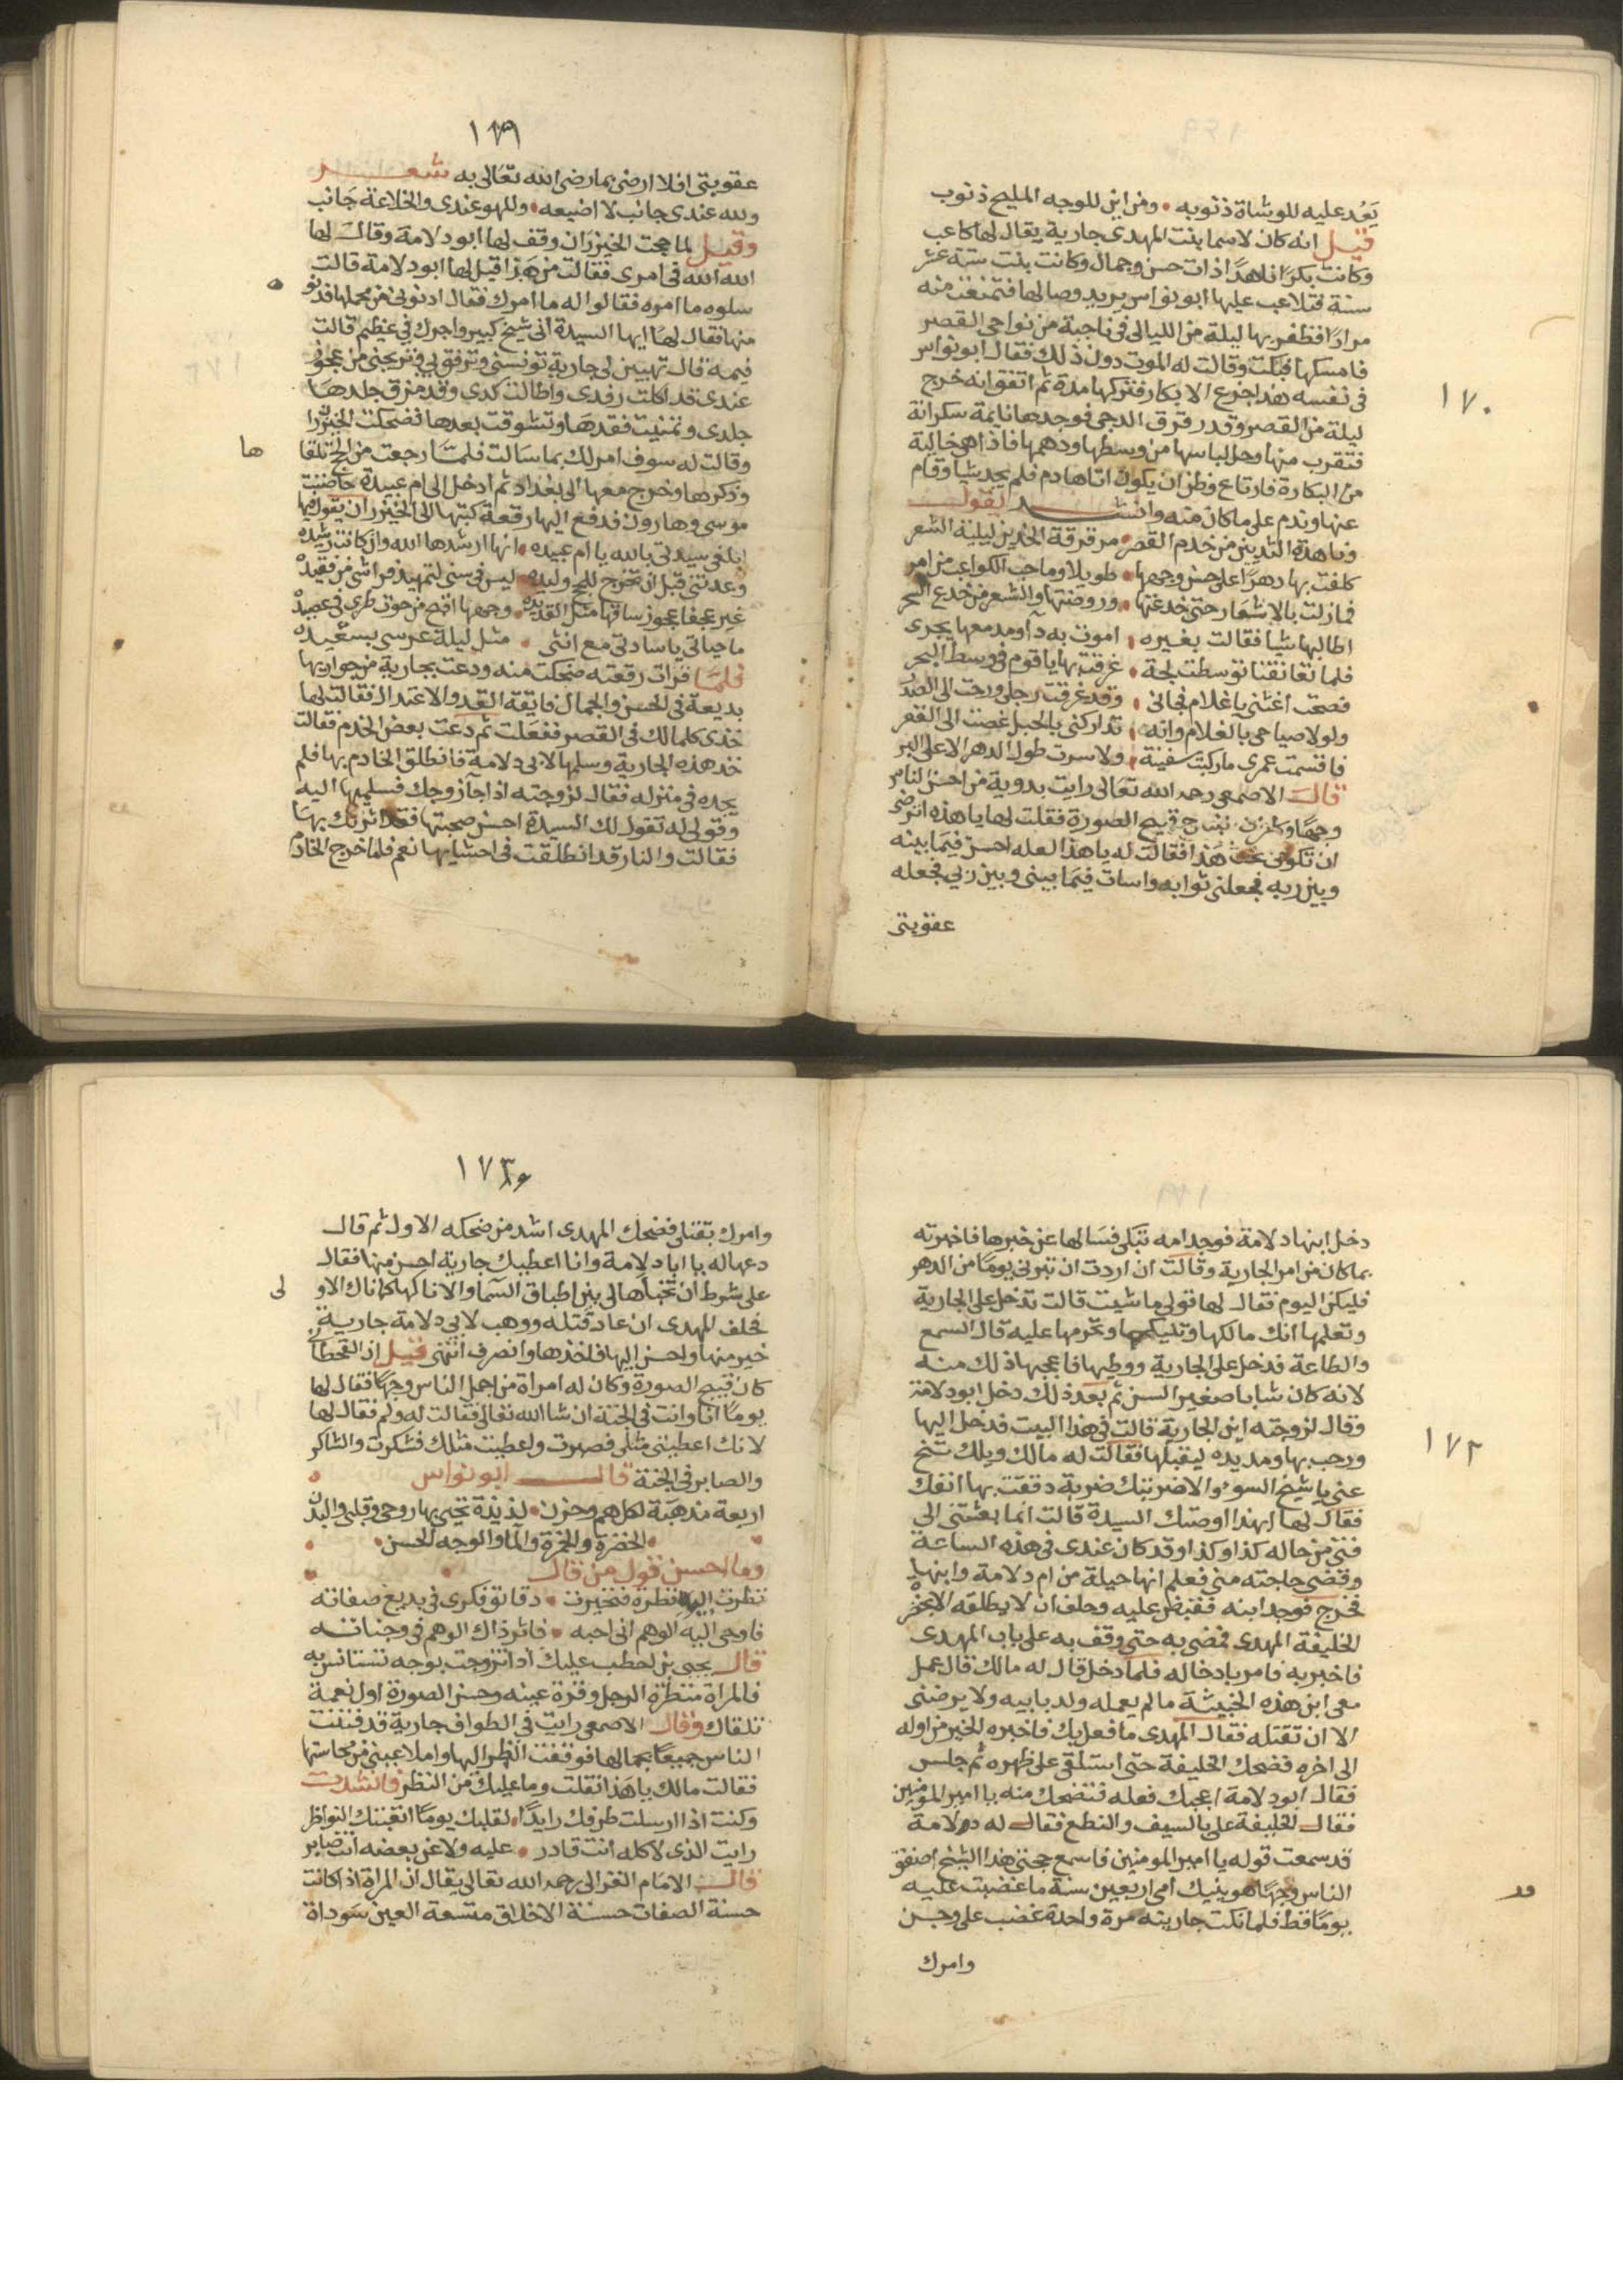 ١٧٠
يَعُد عليه للوشاة ذنوبه ومن اين للوجه المليح ذنوب
قيل انه كان لاسما بنت المهدى جارية يقال لها كاعب
وكانت بكرا ناهدا ذات حسن وجمال وكانت بنت ستة عشر
سنة فتلاعب عليها ابو نواس يريد وصالها فتمنعت منه
مرارا فظفر بها ليلة من الليالى فى ناحية من نواحى القصر
فامسكها فبكت وقالت له الموت دون ذلك فقال ابو نواس
فى نفسه هذا جزع الابكار فتركها مدة ثم اتفق انه خرج
ليلة من القصر وقد رقرق الدجى فوجدها نايمة سكرانة
فتقرب منها وحل لباسها من وسطها ودهمها فاذا هى خالية
من البكارة فارتاع وظن ان يكون اتاها دم فلم يجد شيا وقام
عنها وندم على ما كان منه وانشد يقول
وناهدة الثديين من خدم القصر مرقرقة الخدين ليلية الشعر
كلفت بها دهرا على حسن وجهها طويلا وما حب الكواعب من امر
فما زلت بالاشعار حتى خدعتها وروضتها والشعر من خدع السحر
اطالبها شيا فقالت بغيره اموت به دآ ومدمعها يجرى
فلما تعانقنا توسطت لجة غرقت بها يا قوم فى وسط البحر
فصحت اغثنى يا غلام فجانى وقد غرقت رجلى ورحت الى الصدر
ولولا صياحى بالغلام وانه تداركنى بالحبل غصت الى القعر
فاقسمت عمرى ما ركبت سفينة ولا سرت طول الدهر الا على البر
قال الاصمعى رحمه الله تعالى رايت بدوية من احسن الناس
وجها ولها زوج قبيح الصورة فقلت لها يا هذه اترضى
ان تكونى تحت هذا فقالت له يا هذا لعله احسن فيما بينه
وبين ربه فجعلنى ثوابه واسات فيما بينى وبين ربي فجعله
عقوبتى
١٧١
عقوبتى افلا ارضى بما رضى الله تعالى به شعر
ولله عندى جانب لا اضيعه وللهو عندى والخلاعة جانب
وقيل لما حجت الخيزران وقف لها ابو دلامة وقال لها
الله الله فى امرى فقالت من هذا قيل لها ابو دلامة قالت
سلوه ما امره فقالوا له ما امرك فقال ادنونى من محملها فدنوه
منها فقال لها ايها السيدة انى شيخ كبير واجرك في عظيم قالت
فيمه قال تهبين لى جارية تونسنى وترفق بي وتريحنى من عجوز
عندى قد اكلت رفدى واطالت كدى وقد مزق جلدها
جلدى وتمنيت فقدها وتشوقت بعدها فضحكت الخيزران
وقالت له سوف امر لك بما سالت فلما رجعت من الحج تلقاها
وذكرها وخرج معها الى بغداد ثم ادخل الى ام عبيدة حاضنت
موسى وهارون فدفع اليها رقعة كتبها الى الخيزران يقول فيها
ابلغى سيدتى بالله يا ام عبيده انها ارشدها الله وان كانت رشيده
وعدتنى قبل ان تخرج للحج وليده ليس فى سنى لتمهيد فراشى من فقيده
غير عجفا عجوز ساقها مثل القديده وجهها اقبح من حوت طرى فى عصيده
ما حياتى يا سادتى مع انثى مثل ليلة عرسى بسعيده
فلما قرات رقعته ضحكت منه ودعت بجارية من جواريها
بديعة فى الحسن والجمال فايقة القد والاعتدال فقالت لها
خذى كلما لك فى القصر ففعلت ثم دعت بعض الخدم فقالت
خذ هذه الجارية وسلمها لابى دلامة فانطلق الخادم بها فلم
يجده فى منزله فقال لزوجته اذا جآ زوجك فسلميها اليه
وقولى له تقول لك السيدة احسن صحبتها فقد اثرتك بها
فقالت والنار قد انطلقت فى احشايها نعم فلما خرج الخادم
١٧٢
دخل ابنها دلامة فوجد امه تبكى فسالها عن خبرها فاخبرته
بما كان من امر الجارية وقالت ان اردت ان تبرنى يوما من الدهر
فليكن اليوم فقال لها قولى ما شيت قالت تدخل على الجارية
وتعلمها انك مالكها وتنيكها وتحرمها عليه قال السمع
والطاعة فدخل على الجارية ووطيها فاعجبها ذلك منه
لانه كان شابا صغير السن ثم بعد ذلك دخل ابو دلامة
وقال لزوجته اين الجارية قالت فى هذا البيت فدخل اليها
ورحب بها ومد يده ليقبلها فقالت له مالك ويلك تنح
عنى يا شيخ السوء والا ضربتك ضربة دققت بها انفك
فقال لها ابهذا اوصتك السيدة قالت انما بعثتنى الى
فتى من حاله كذا وكذا وقد كان عندى فى هذه الساعة
وقضى حاجته منى فعلم انها حيلة من ام دلامة وابنها
فخرج فوجد ابنه فقبض عليه وحلف ان لا يطلقه الا بحضرة
الخليفة المهدى فمضى به حتى وقف به على باب المهدى
فاخبر به فامر بادخاله فلما دخل قال له مالك قال عمل
معى ابن هذه الخبيثة ما لم يعمله ولد بابيه ولا يرضنى
الا ان تقتله فقال المهدى ما فعل بك فاخبره الخبر من اوله
الى اخره فضحك الخليفة حتى استلقى على ظهره ثم جلس
فقال ابو دلامة اعجبك فعله فتضحك منه يا امير المؤمنين
فقال الخليفة على بالسيف والنطع فقال له دلامة
قد سمعت قوله يا امير المومنين فاسمع حجتى هذا الشيخ اصفق
الناس وجها هو ينيك امى اربعين سنة ما غضبت عليه
يوما قط فلما نكت جاريته مرة واحدة غضب على وجن
وامرك
١٧٣
وامرك بقتلى فضحك المهدى اشد من ضحكه الاول ثم قال
دعها له يا ابا دلامة وانا اعطيك جارية احسن منها فقال
على شرط ان تخباها لى بين اطباق السما والا ناكها كما ناك الاولى
فحلف المهدى ان عاد قتله ووهب لابي دلامة جارية
خير منها واحسن اليها فاخذها وانصرف انتهى قيل ان القحطان
كان قبيح الصورة وكان له امراة من اجمل الناس وجها فقال لها
يوما انا وانت فى الجنة ان شا الله تعالى فقالت له ولم فقال لها
لانك اعطيتى مثلى فصبرت واعطيت مثلك فشكرت والشاكر
والصابر فى الجنة قال ابو نواس
اربعة مذهبة لكل هم وحزن لذيذة تحيى بها روحى وقلبى والبدن
الخضرة والخمرة والما والوجه الحسن
وما احسن قول من قال
نظرت اليها نظرة فتحيرت دقائق فكرى فى بديع صفاته
فاوحى اليه الوهم انى احبه فاثر ذاك الوهم فى وجناته
قال يحيى بن لحطب عليك اذا تزوجت بوجه تستانس به
فالمراة منتظرة الرجل وقرة عينه وحسن الصورة اول نعمة
تلقاك وقال الاصمعى رايت فى الطواف جارية قد فتنت
الناس جميعا بجمالها فوقفت انظر اليها واملا عينى من محاسنها
فقالت مالك يا هذا فقلت وما عليك من النظر فانشدت
وكنت اذا ارسلت طرفك رايدا لقلبك يوما اتعبتك النواظر
رايت الذى لا كله انت قادر عليه ولا عن بعضه انت صابر
قال الامام الغزالى رحمه الله تعالى يقال ان المراة اذا كانت
حسنة الصفات حسنة الاخلاق متسعة العين سوداة